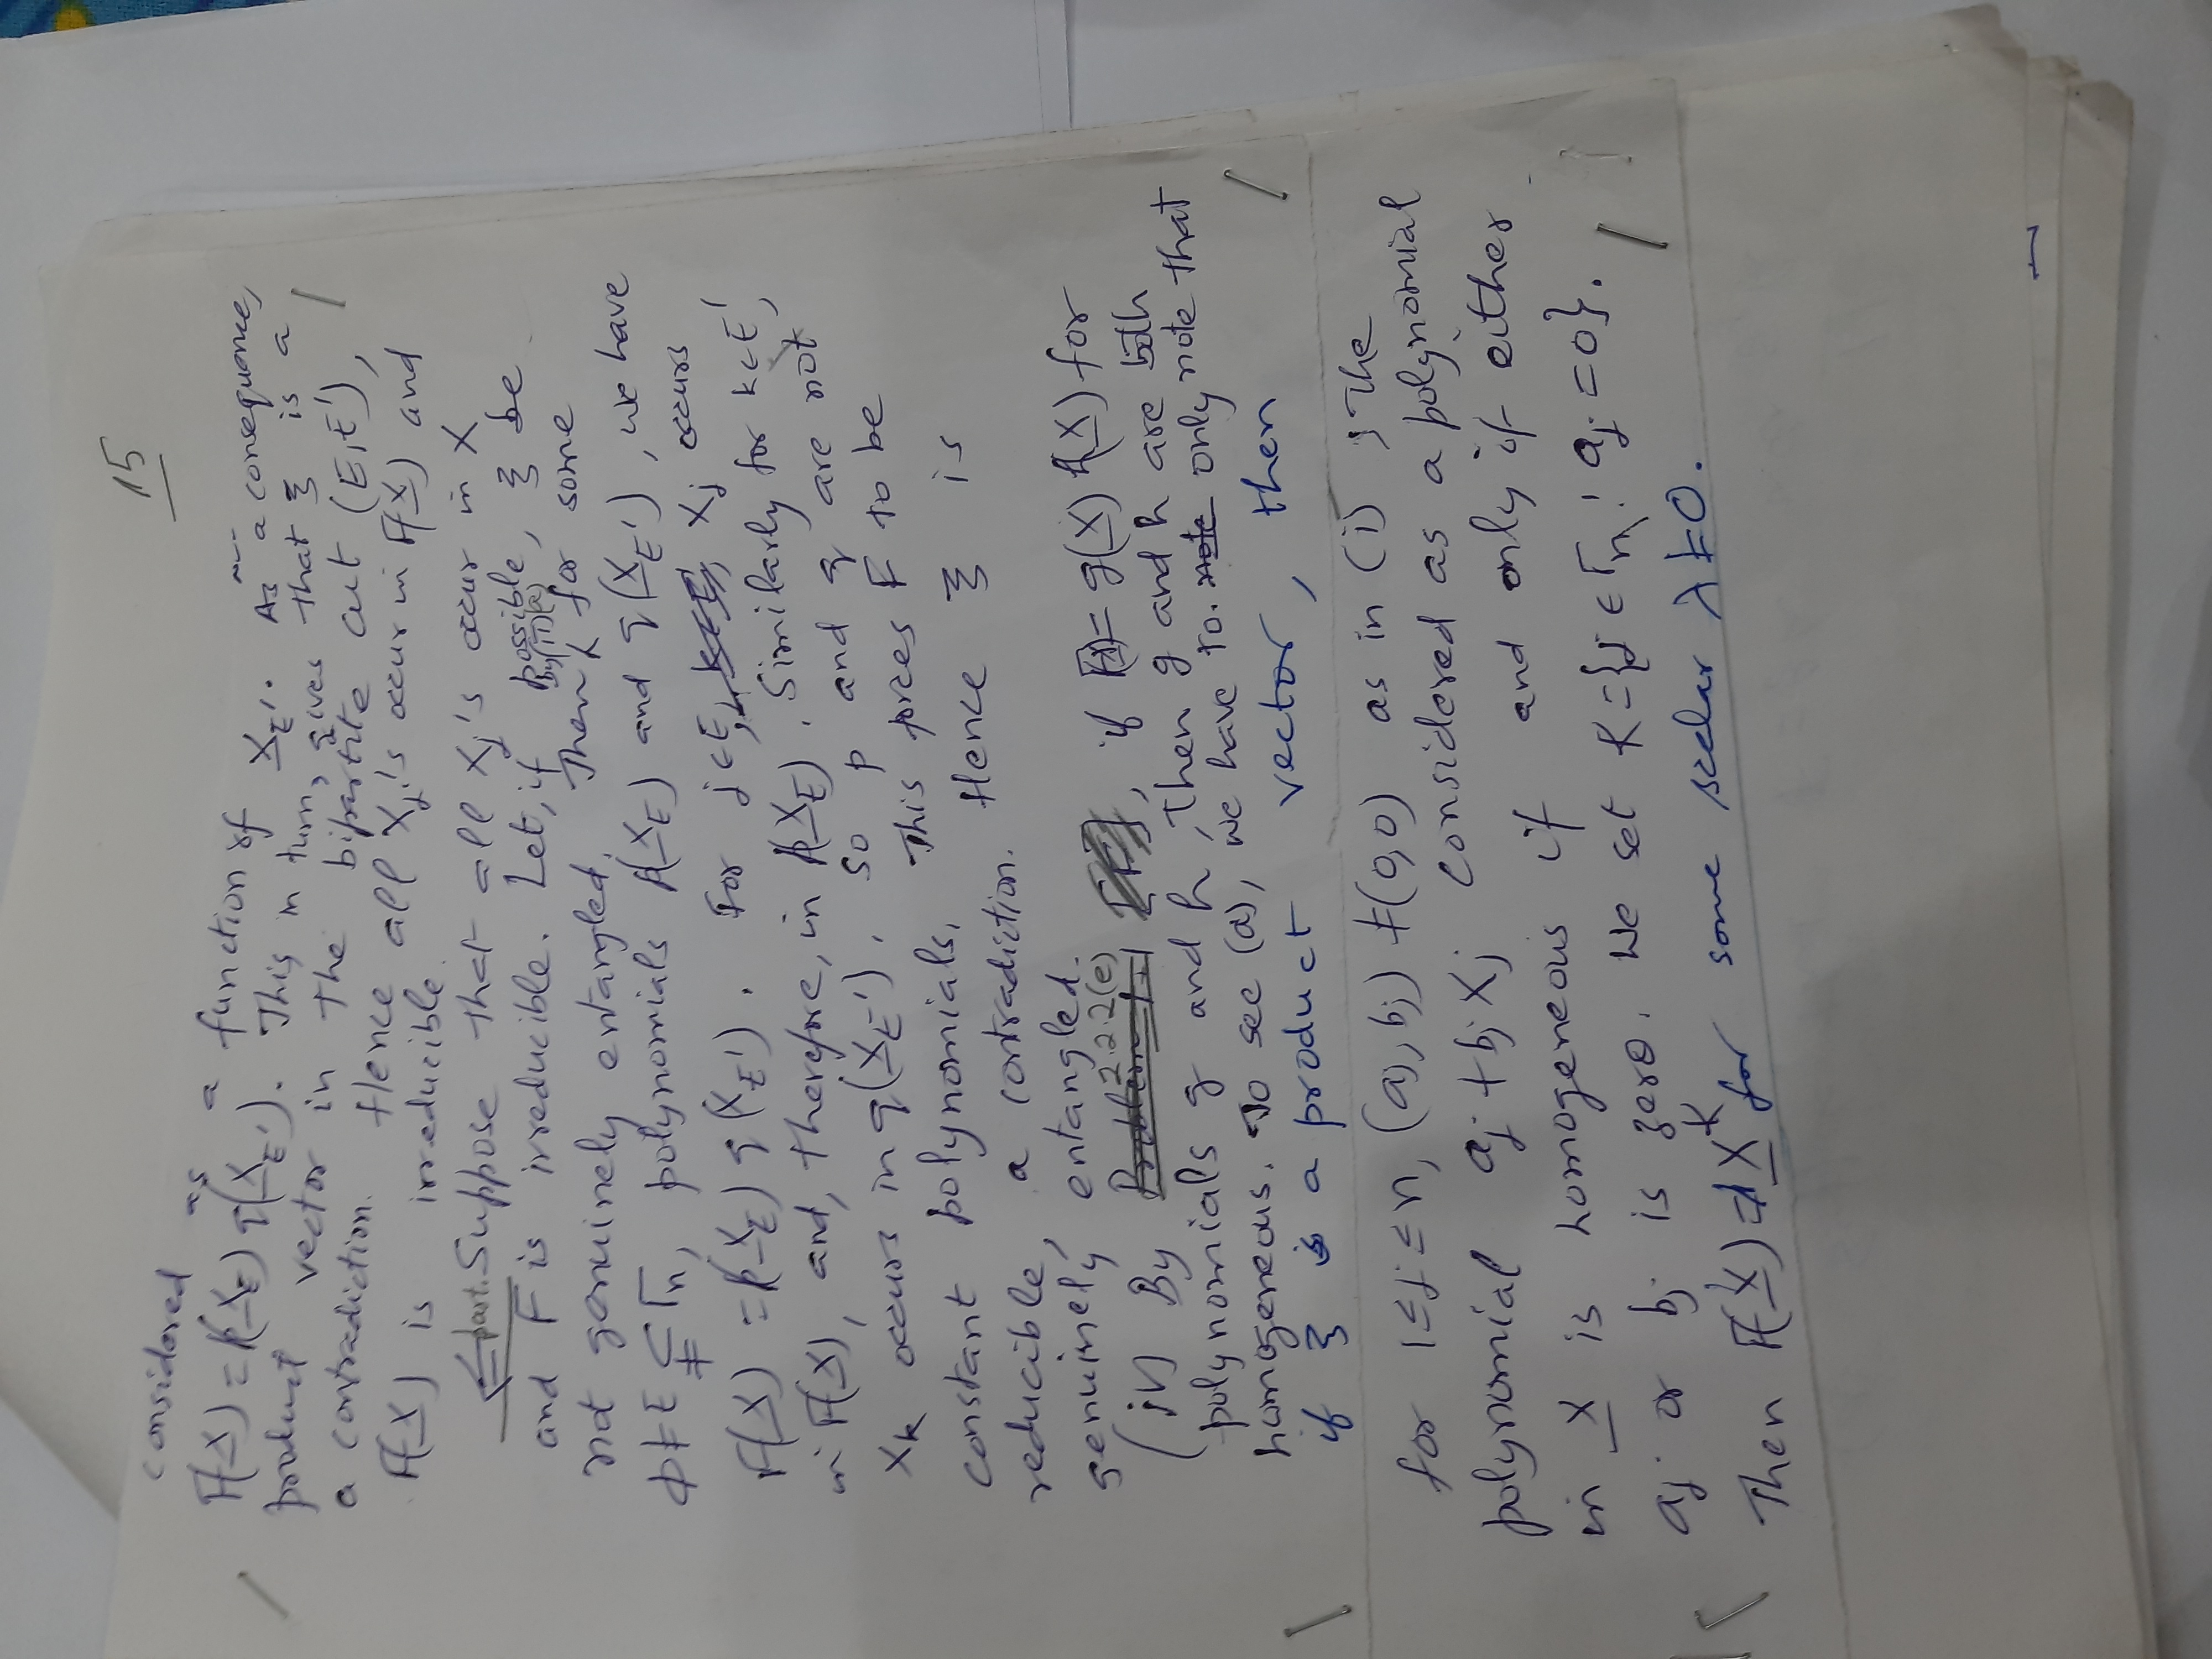 15
considered as a function of X_E'. As a consequence,
F(X) = p(X_E) q(X_E'). This in turn, gives that ξ is a
product vector in the bipartite cut (E, E'),
a contradiction. Hence all X_j's occur in F(X) and
F(X) is irreducible.
⇐ part. Suppose that all X_j's occur in X
and F is irreducible. Let, if possible, ξ be
not genuinely entangled. Then by (ii)(a) for some
ϕ ≠ E ⊊ Γ_n, polynomials p(X_E) and q(X_E'), we have
F(X) = p(X_E) q(X_E'). For j ∈ E, X_j occurs
in F(X), and, therefore, in p(X_E). Similarly for k ∈ E',
X_k occurs in q(X_E'). So p and q are not
constant polynomials. This forces F to be
reducible, a contradiction. Hence ξ is
genuinely entangled.
(iv) By 2.2.2(e), if F(X) = g(X) h(X) for
polynomials g and h, then g and h are both
homogeneous. To see (a), we have to only note that
if ξ is a product vector, then
for 1 ≤ j ≤ n, (a_j, b_j) ≠ (0,0) as in (i), the
polynomial a_j + b_j X_j considered as a polynomial
in X is homogeneous if and only if either
a_j or b_j is zero. We set K = {j ∈ Γ_n : a_j = 0}.
Then F(X) = λ X^K for some scalar λ ≠ 0.